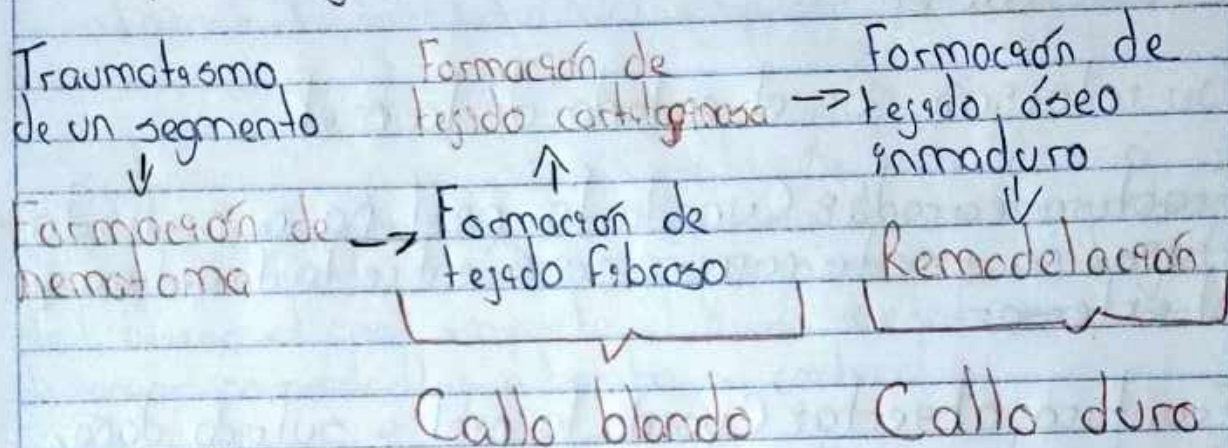 Traumatismo
de un segmento
↓
Formación de
hematoma
→
Formación de
tejido fibroso
↑
Formación de
tejido cartilaginosa
→
Formación de
tejido óseo
inmaduro
↓
Remodelación
Callo blando
Callo duro